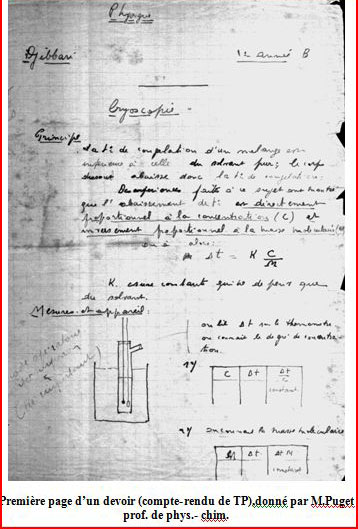 Physique
Djebbari 1e année B
Cryoscopie
Principe La t° de congélation d'un mélange est
inférieure à celle du solvant pur; le corps
dissout abaisse donc la t° de congélation.
Des expériences faites à ce sujet ont montré
que l'abaissement de t° est directement
proportionnel à la concentration (C) et
inversement proportionnel à la masse moléculaire (M)
on a alors:
Δt = K C/M
K. est une constante qui ne dépend que
du solvant.
Mesures et appareil:
on lit Δt sur le thermomètre
on connait le degré de concentra-
tion.
1°/
C Δt Δt/C
constant
2°/ on connait la masse moléculaire
M Δt Δt M
constant
Première page d'un devoir (compte-rendu de TP),donné par M.Puget
prof. de phys.- chim.